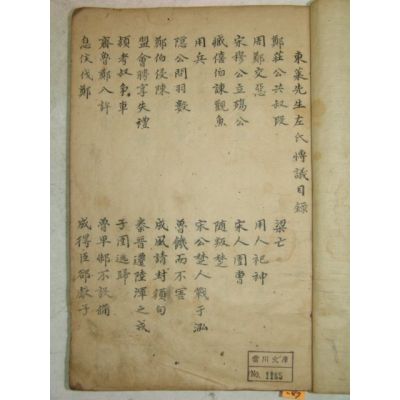 東萊先生左氏愽議目錄
鄭莊公共叔段
周鄭交惡
宋穆公立殤公
臧僖伯諫觀魚
用兵
隱公問羽數
鄭伯侵陳
盟會聘享失禮
頴考叔爭車
齊魯鄭入許
息侯伐鄭
梁亡
用人祀神
宋人圍曹
隨叛楚
宋公楚人戰于泓
魯饑而不害
成風請封須句
秦晉遷陸渾之戎
子圉逃歸
魯卑邾不設備
成得臣郤獻子
川文庫
No.